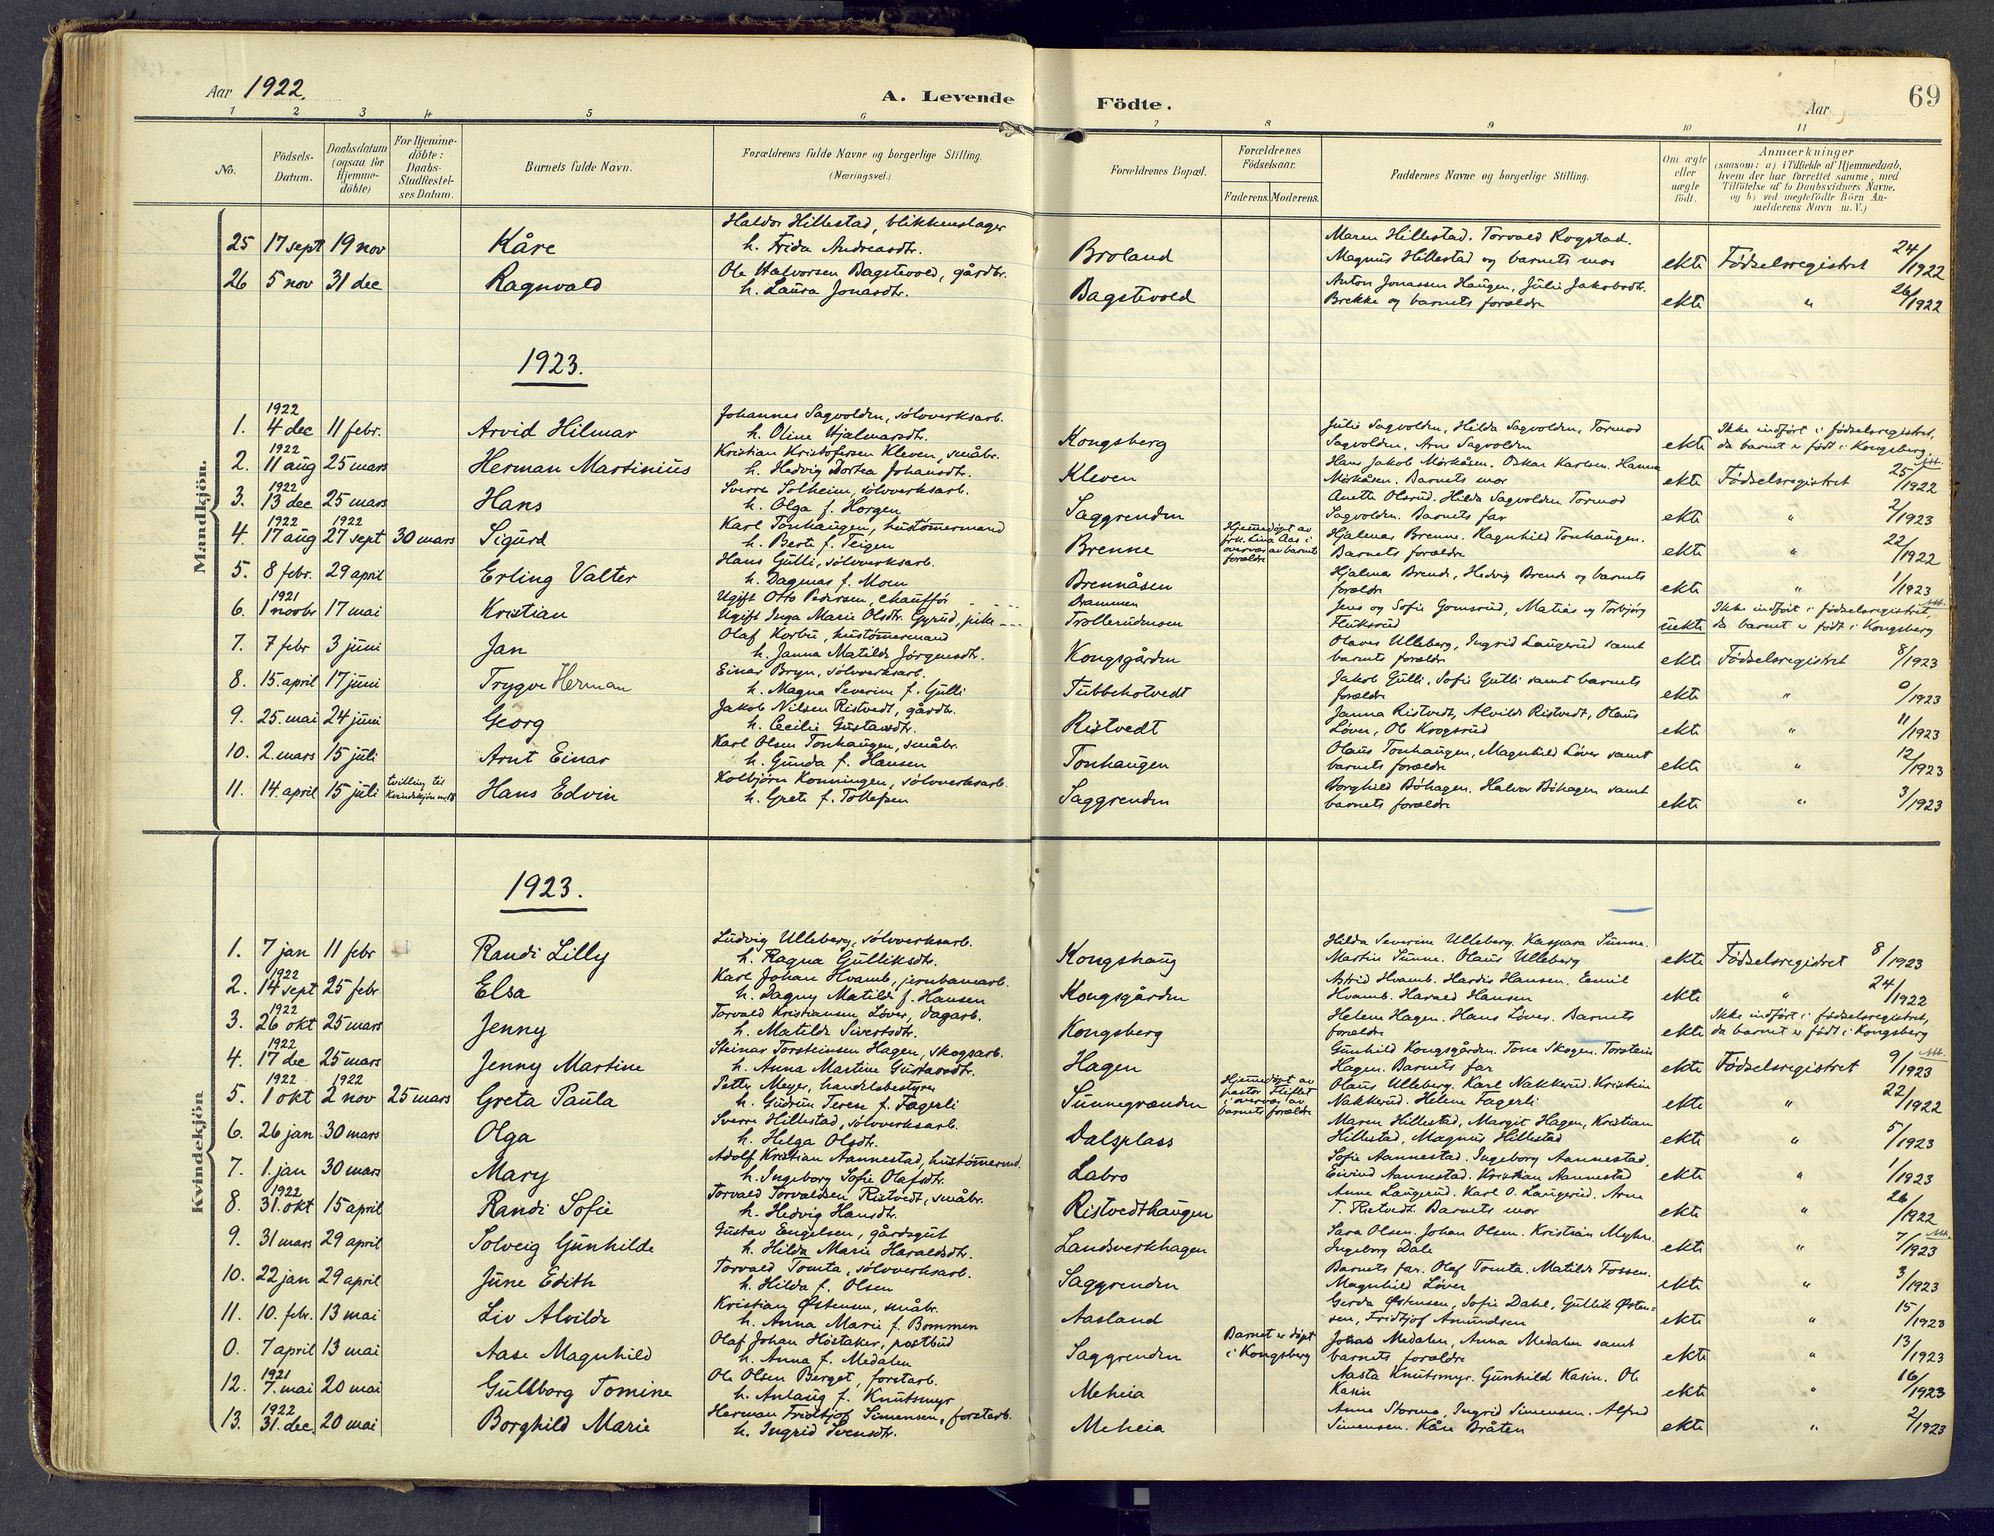 Aar 1922. A. Levende Födte. Aar 69
1 2 3 4 5 6 7 8 9 10 11
No. Födsels-Datum. Daabsdatum (ogsaa for Hjemmedöbte) For Hjemmedöbte: Daabs-Stadfæstelses Datum. Barnets fulde Navn. Forældrenes fulde Navne og borgerlige Stilling. (Næringsvei.) Forældrenes Bopæl. Forældrenes Födselsaar. Faderens. Moderens. Faddernes Navne og borgerlige Stilling. Om ægte eller uægte födt. Anmærkninger (saasom: a) i Tilfælde af Hjemmedaab, hvem der har forrettet samme, med Tilföielse af to Daabsvidners Navne. og b) ved uægtefödte Börn Anmelderens Navn m. V.)
Mandkjön.
25 17 sept 19 nov Kåre Haldor Hillestad, blikkenslager h. Frida Andreasdtr. Broland Maren Hillestad. Torvald Rogstad. Magnus Hillestad og barnets mor ekte Födselsregistret 24/1922
26 5 nov 31 dec Ragnvald Ole Halvorsen Bagstevold, gårdbr. h. Laura Jonasdtr. Bagstevold Anton Jonassen Haugen, Julie Jakobsdtr. Brekke og barnets forældre ekte " 26/1922
1923.
1. 1922 4 dec 11 febr. Arvid Hilmar Johannes Sagvolden, sölvverksarb. h. Oline Hjalmarsdtr. Kongsberg Julie Sagvolden, Hilda Sagvolden, Tormod Sagvolden, Arne Sagvolden ekte Ikke indfört i födselsregistret, da barnet er födt i Kongsberg.
2. 1922 11 aug 25 mars Herman Martinius Kristian Kristofersen Kleven, småbr. h. Hedvig Dortea Johansdtr. Kleven Hans Jakob Mörkåsen. Oskar Karlsen. Hanna Mörkåsen. Barnets mor ekte Födselsregistret 25/1922
3. 1922 13 dec 25 mars Hans Sverre Solheim, sölvverksarb. h. Olga f. Horgen Saggrenden Anette Olsrud. Hilda Sagvolden Tormod Sagvolden. Barnets far ekte " 2/1923
4. 1922 17 aug 1922 27 sept 30 mars Sigurd Karl Tonhaugen, hustömermand h. Berte f. Teigen Brenne Hjemmedöpt av frk. Lina Aas i overvær av barnets forældre Hjalmar Brenne. Ragnhild Tonhaugen. Barnets forældre ekte " 22/1922
5. 8 febr. 29 april Erling Valter Hans Gulli, sölvverksarb. h. Dagmar f. Moen Brennåsen Hjalmar Brende, Hedvig Brende og barnets forældre ekte " 1/1923
6. 1921 1 novbr 17 mai Kristian Ugift Otto Pedersen, chaufför Ugift Inga Marie Olsdtr. Gyrud, pike Drammen Trollerudmoen Jens og Sofie Gomsrud, Matias og Torbjörg Fluksrud uekte Ikke indfört i födselsregistret, da barnet er födt i Kongsberg
7. 7 febr 3 juni Jan Olaf Korbu, hustömermand h. Janna Matilde Jörgensdtr. Kongsgården Olaves Ulleberg, Ingrid Laugerud samt barnets forældre ekte Födselsregistret 8/1923
8. 15. april 17 juni Trygve Herman Einar Bryn, sölvverksarb. h. Magna Severine f. Gulli Tubbeholvedt Jakob Gulli. Sofie Gulli samt barnets forældre ekte " 0/1923
9. 25. mai 24 juni Georg Jakob Nilsen Ristvedt, gårdbr. h. Cecilie Gustavsdtr. Ristvedt Janna Ristvedt, Alvilde Ristvedt, Olaus Löver, Ole Krogsrud ekte " 11/1923
10. 2. mars 15 juli Arnt Einar Karl Olsen Tonhaugen, småbr. h. Gunda f. Hansen Tonhaugen Olaus Tonhaugen, Magnhild Löver samt barnets forældre ekte " 12/1923
11. 14. april 15 juli tvilling til Kvindekjön nr. 18 Hans Edvin Kolbjörn Konningen, sölvverksarb. h. Grete f. Tollefsen Saggrenden Borghild Böhagen. Halvor Böhagen samt barnets forældre ekte " 3/1923
Kvindekjön
1923.
1. 7 jan 11 febr Randi Lilly Ludvig Ulleberg, sölvverksarb. h. Ragna Gulliksdtr. Kongshaug Hilda Severine Ulleberg. Kaspara Sunne. Martin Sunne. Olaus Ulleberg ekte Födselsregistret 8/1923
2. 1922 14 sept 25 febr Elsa Karl Johan Hvamb, jernbanearb. h. Dagny Matilde f. Hansen Kongsgården Astrid Hvamb. Hardis Hansen. Emil Hvamb. Harald Hansen ekte " 24/1922
3. 1922 26 okt 25 mars Jenny Torvald Kristiansen Löver, dagarb. h. Matilde Sivertsdtr. Kongsberg Helene Hagen. Hans Löver. Barnets forældre ekte Ikke indfört i födselsregistret, da barnet er födt i Kongsberg
4. 1922 17 dec 25 mars Jenny Martine Steinar Torsteinsen Hagen, skogsarb. h. Anna Martine Gustavsdtr. Hagen Gunhild Kongsgården. Tone Skogen. Torstein Hagen. Barnets far ekte Födselsregistret 9/1923
5. 1922 1 okt 1922 2 nov 25 mars Greta Paula Petter Meyer, handelsbestyrer h. Gudrun Terese f. Fagerli Sunnegrænden Hjemmedöpt av pastor Fliflet i overvær av barnets forældre Olaus Ulleberg. Karl Nakkerud. Kristine Nakkerud. Helene Fagerli ekte " 22/1922
6. 26 jan 30 mars Olga Sverre Hillestad, sölvverksarb. h. Helga Olsdtr. Dalsplass Maren Hillestad, Margit Hagen, Kristian Hillestad, Magnus Hillestad ekte " 5/1923
7. 1. jan 30 mars Mary Adolf Kristian Aannestad, hustömermd. h. Ingeborg Sofie Olafsdtr. Labro Sofie Aannestad. Ingeborg Aannestad. Eivind Aannestad. Kristian Aannestad ekte " 1/1923
8. 1922 31. okt 15 april Randi Sofie Torvald Torvaldsen Ristvedt, småbr. h. Hedvig Hansdtr. Ristvedthaugen Anne Laugerud. Karl O. Laugerud. Arne T. Ristvedt. Barnets mor ekte " 26/1922
9. 31 mars 29 april Solveig Gunhilde Gustav Engelsen, gårdsgut h. Hilda Marie Haraldsdtr. Landsverkhagen Sara Olsen. Johan Olsen. Kristian Myhre. Ingeborg Dale ekte " 7/1923
10. 22 jan 29 april June Edith Torvald Tomta, sölvverksarb. h. Hilda f. Olsen Saggrenden Barnets far. Olaf Tomta. Matilde Fossen. Magnhild Löver ekte " 3/1923
11. 10. febr. 13 mai Liv Alvilde Kristian Østensen, småbr. h. Anna Marie f. Bommen Aasland Gerda Østensen, Sofie Dahl, Gullik Østensen, Fridtjof Amundsen ekte " 15/1923
0. 7 april 13 mai Aase Magnhild Olaf Johan Höstaker, postbud h. Anna f. Medalen Saggrenden Barnet er döpt i Kongsberg Johan Medalen, Anna Medalen samt barnets forældre ekte " 13/1923
12. 1921 7. mai 20 mai Gullborg Tomine Ole Olsen Berget, forstarb. h. Anlaug f. Knutsmyr Meheia Aasta Knutsmyr. Gunhild Kasin. Ole Kasin ekte " 16/1923
13. 1922 31. dec. 20 mai Borghild Marie Herman Fridtjof Simensen, forstarb. h. Ingrid Svensdtr. Meheia Anna Stormo, Ingrid Simensen. Alfred Simensen. Kåre Bråten ekte " 2/1923